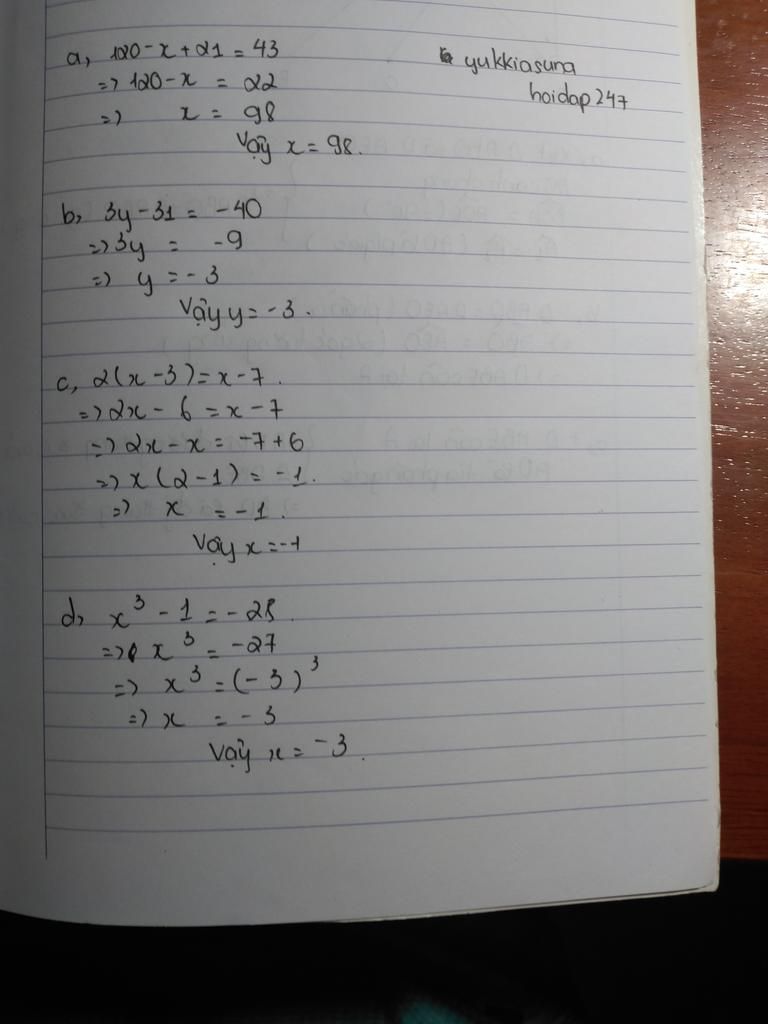 a, 120 - x + 21 = 43
=> 120 - x = 22
=> x = 98
Vậy x = 98.
yukkiasuna
hoidap247
b, 3y - 31 = -40
=> 3y = -9
=> y = -3
Vậy y = -3.
c, 2(x - 3) = x - 7.
=> 2x - 6 = x - 7
=> 2x - x = -7 + 6
=> x(2 - 1) = -1.
=> x = -1.
Vậy x = -1
d, x³ - 1 = -28
=> x³ = -27
=> x³ = (-3)³
=> x = -3
Vậy x = -3.